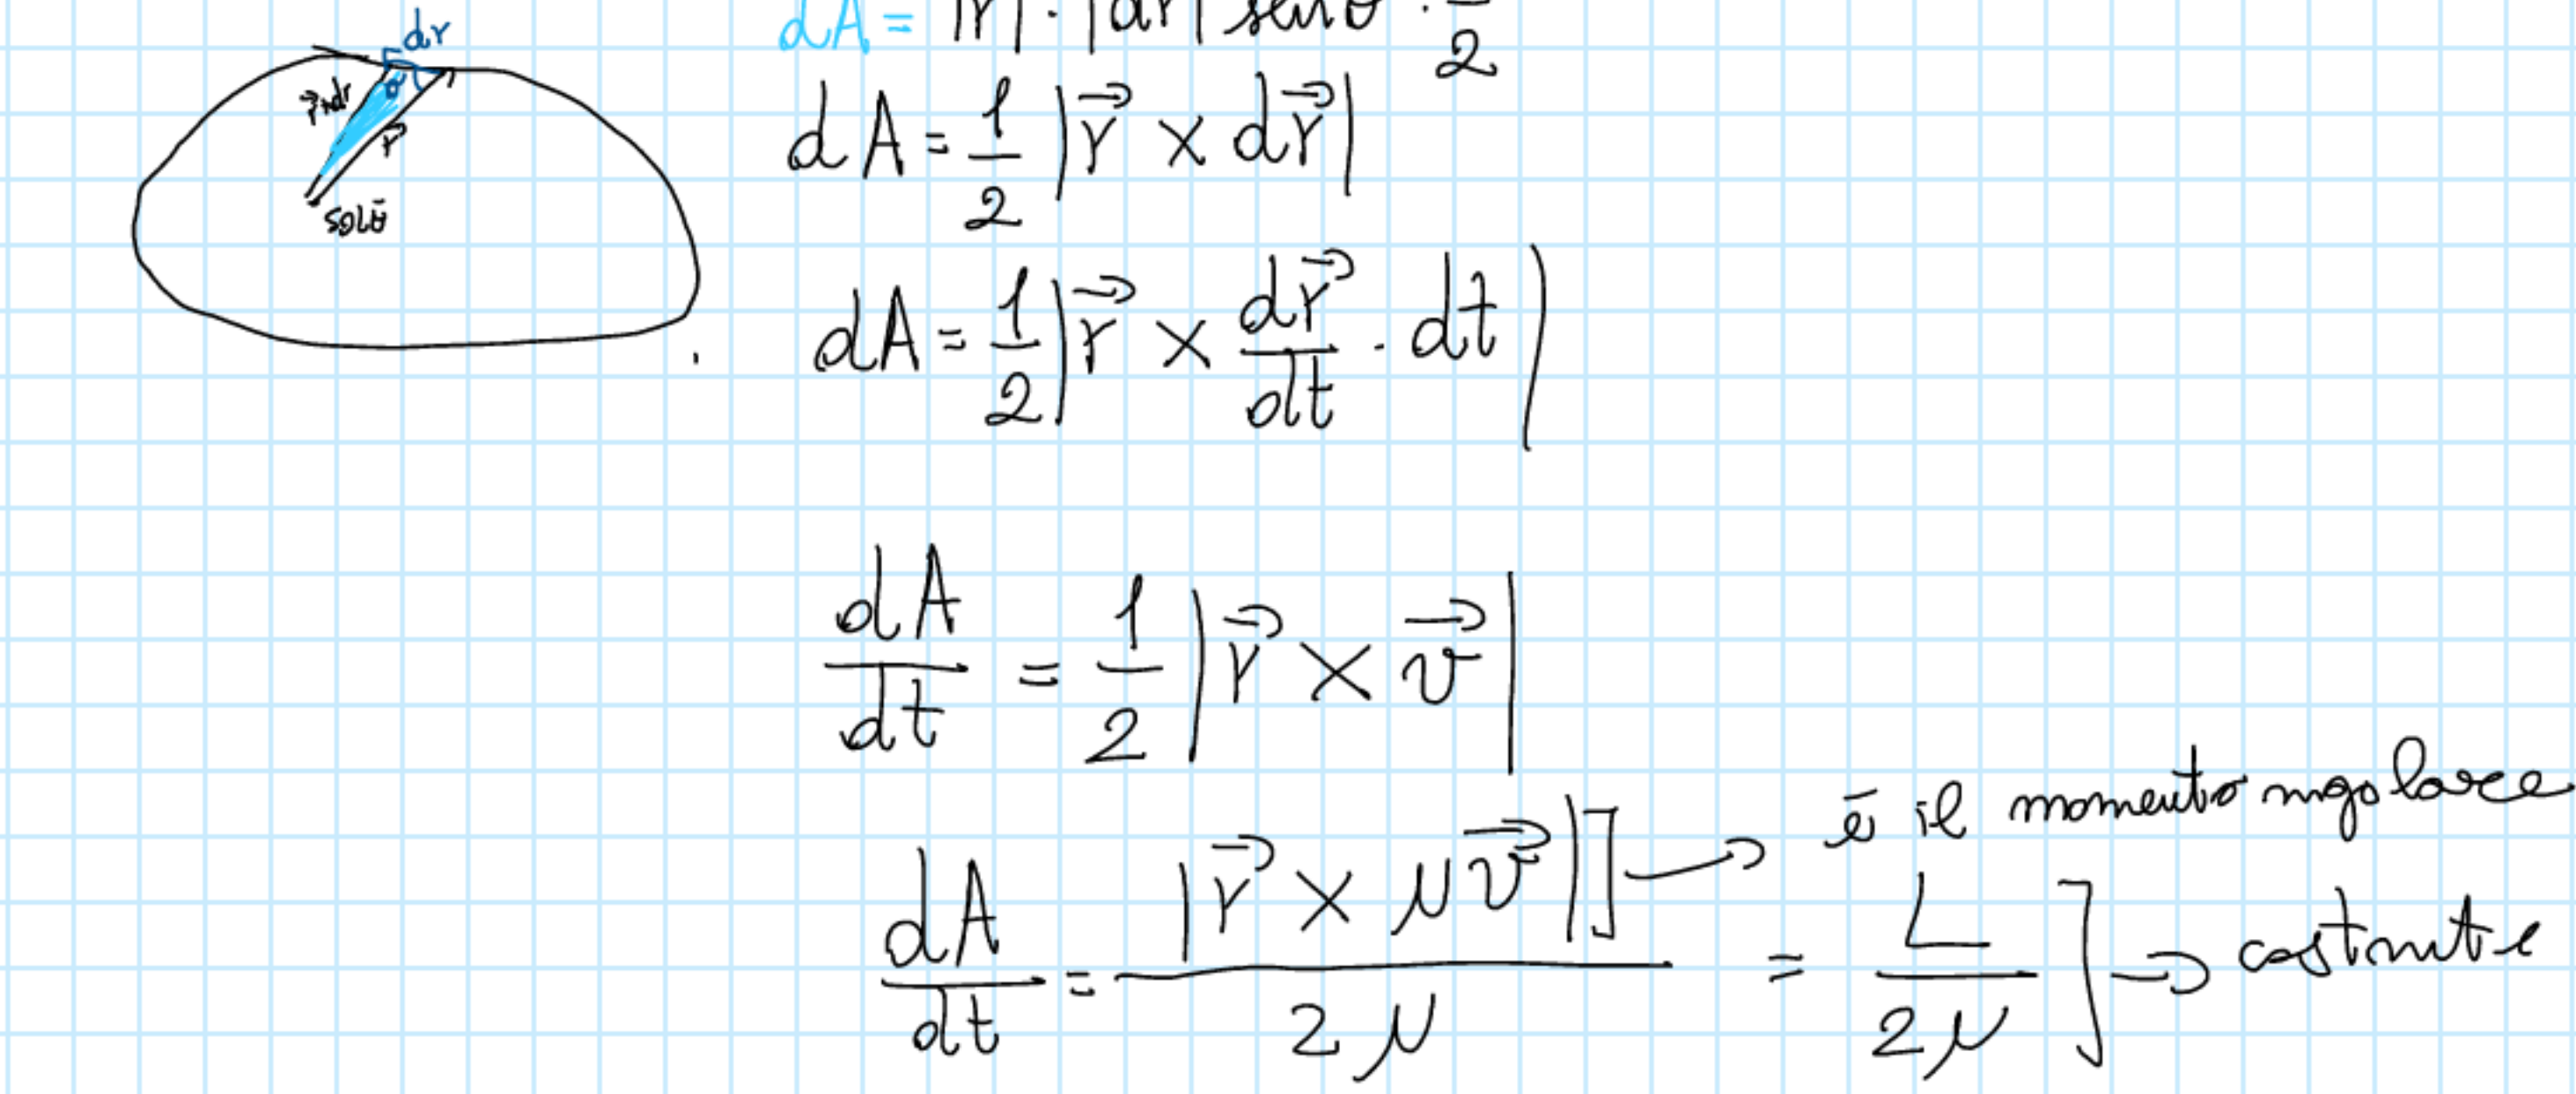 dr
r⃗+dr
θ
r⃗
sole
dA = |r| · |dr| senθ · 1/2
dA = 1/2 |r⃗ × dr⃗|
dA = 1/2 |r⃗ × dr⃗/dt · dt|
dA/dt = 1/2 |r⃗ × v⃗|
dA/dt = |r⃗ × μv⃗|]/2μ → è il momento angolare
= L/2μ ] → costante